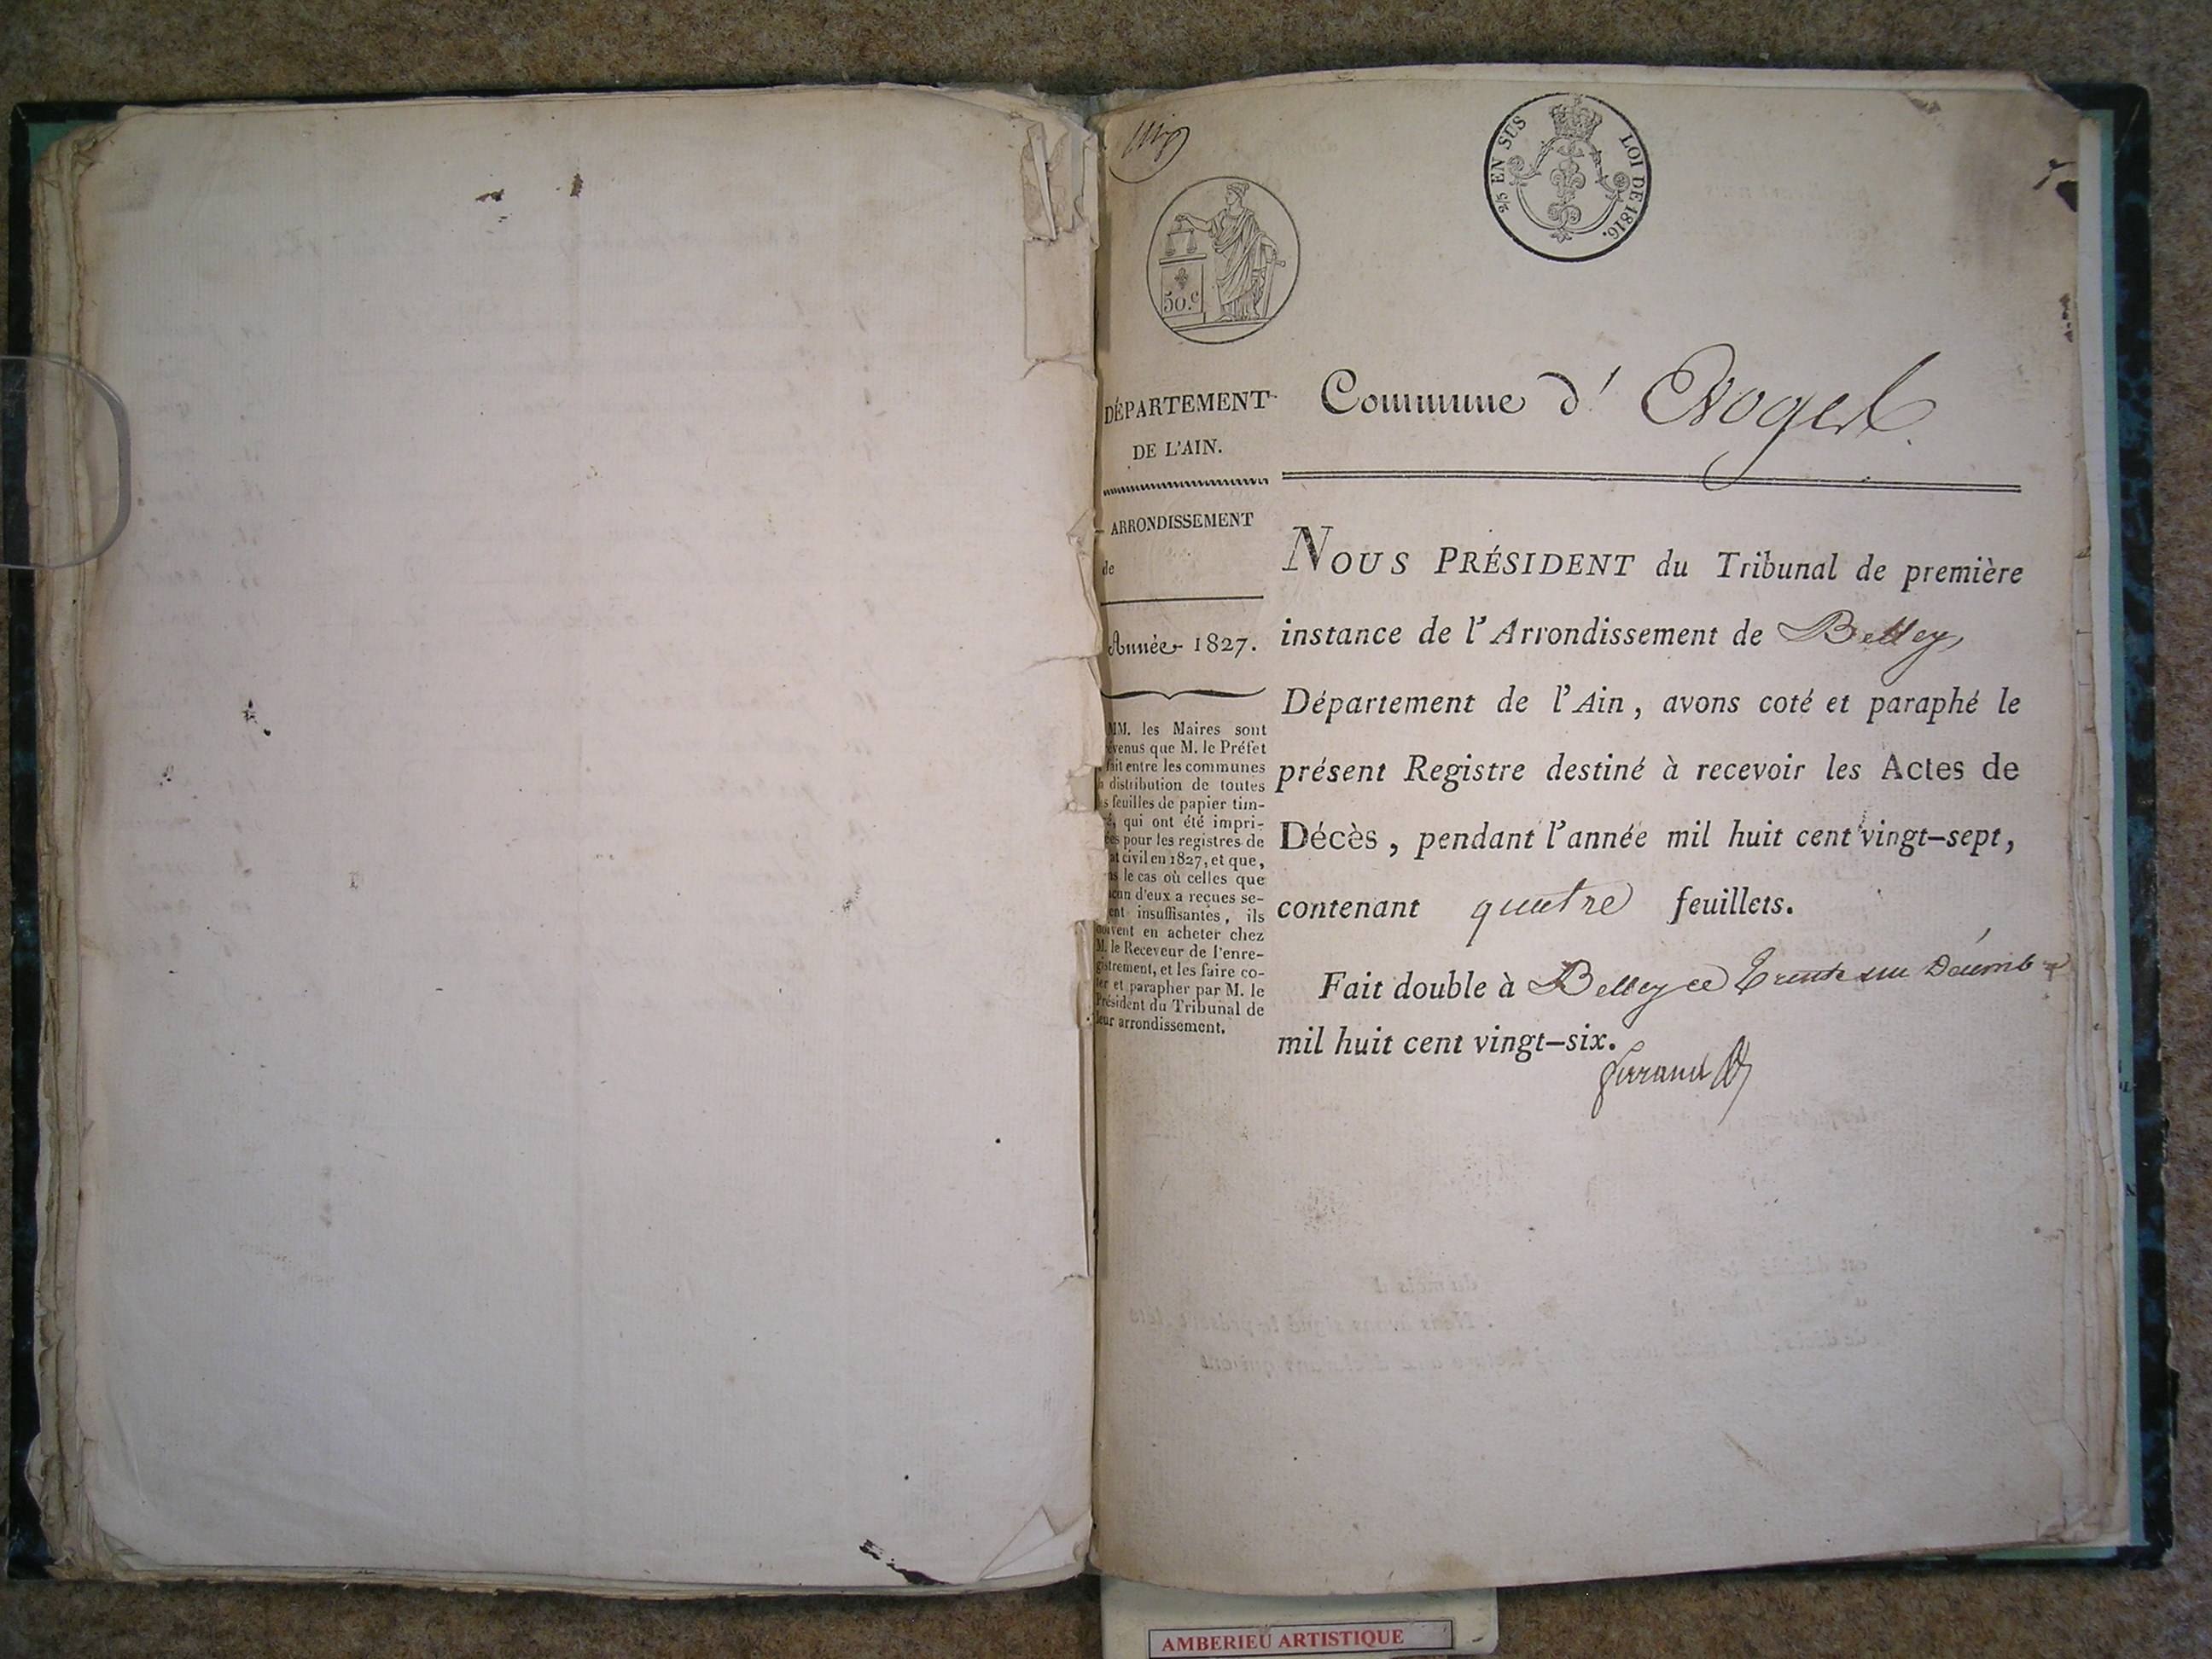 2/5 EN SUS LOI DE 1816.
50.c
DÉPARTEMENT
DE L'AIN.
ARRONDISSEMENT
de
Année 1827.
MM. les Maires sont
venus que M. le Préfet
fait entre les communes
distribution de toutes
feuilles de papier tim-
qui ont été impri-
pour les registres de
civil en 1827, et que,
le cas où celles que
d'eux a reçues se-
insuffisantes, ils
doivent en acheter chez
M. le Receveur de l'enre-
gistrement, et les faire co-
ter et parapher par M. le
Président du Tribunal de
leur arrondissement.
Commune d'
NOUS PRÉSIDENT du Tribunal de première
instance de l'Arrondissement de Belley
Département de l'Ain, avons coté et paraphé le
présent Registre destiné à recevoir les Actes de
Décès, pendant l'année mil huit cent vingt-sept,
contenant quatre feuillets.
Fait double à Belley ce trente un Décembre
mil huit cent vingt-six.
AMBERIEU ARTISTIQUE